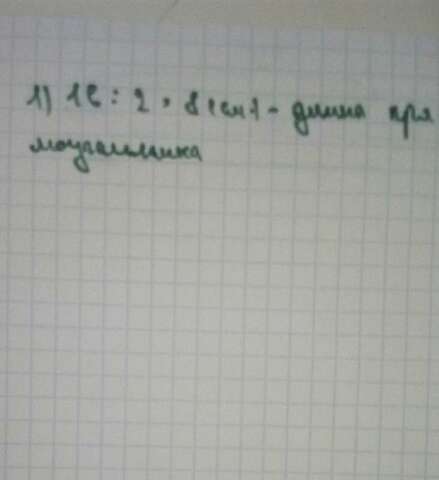 1) 16 : 2 = 8 (см) - длина пря
моугольника